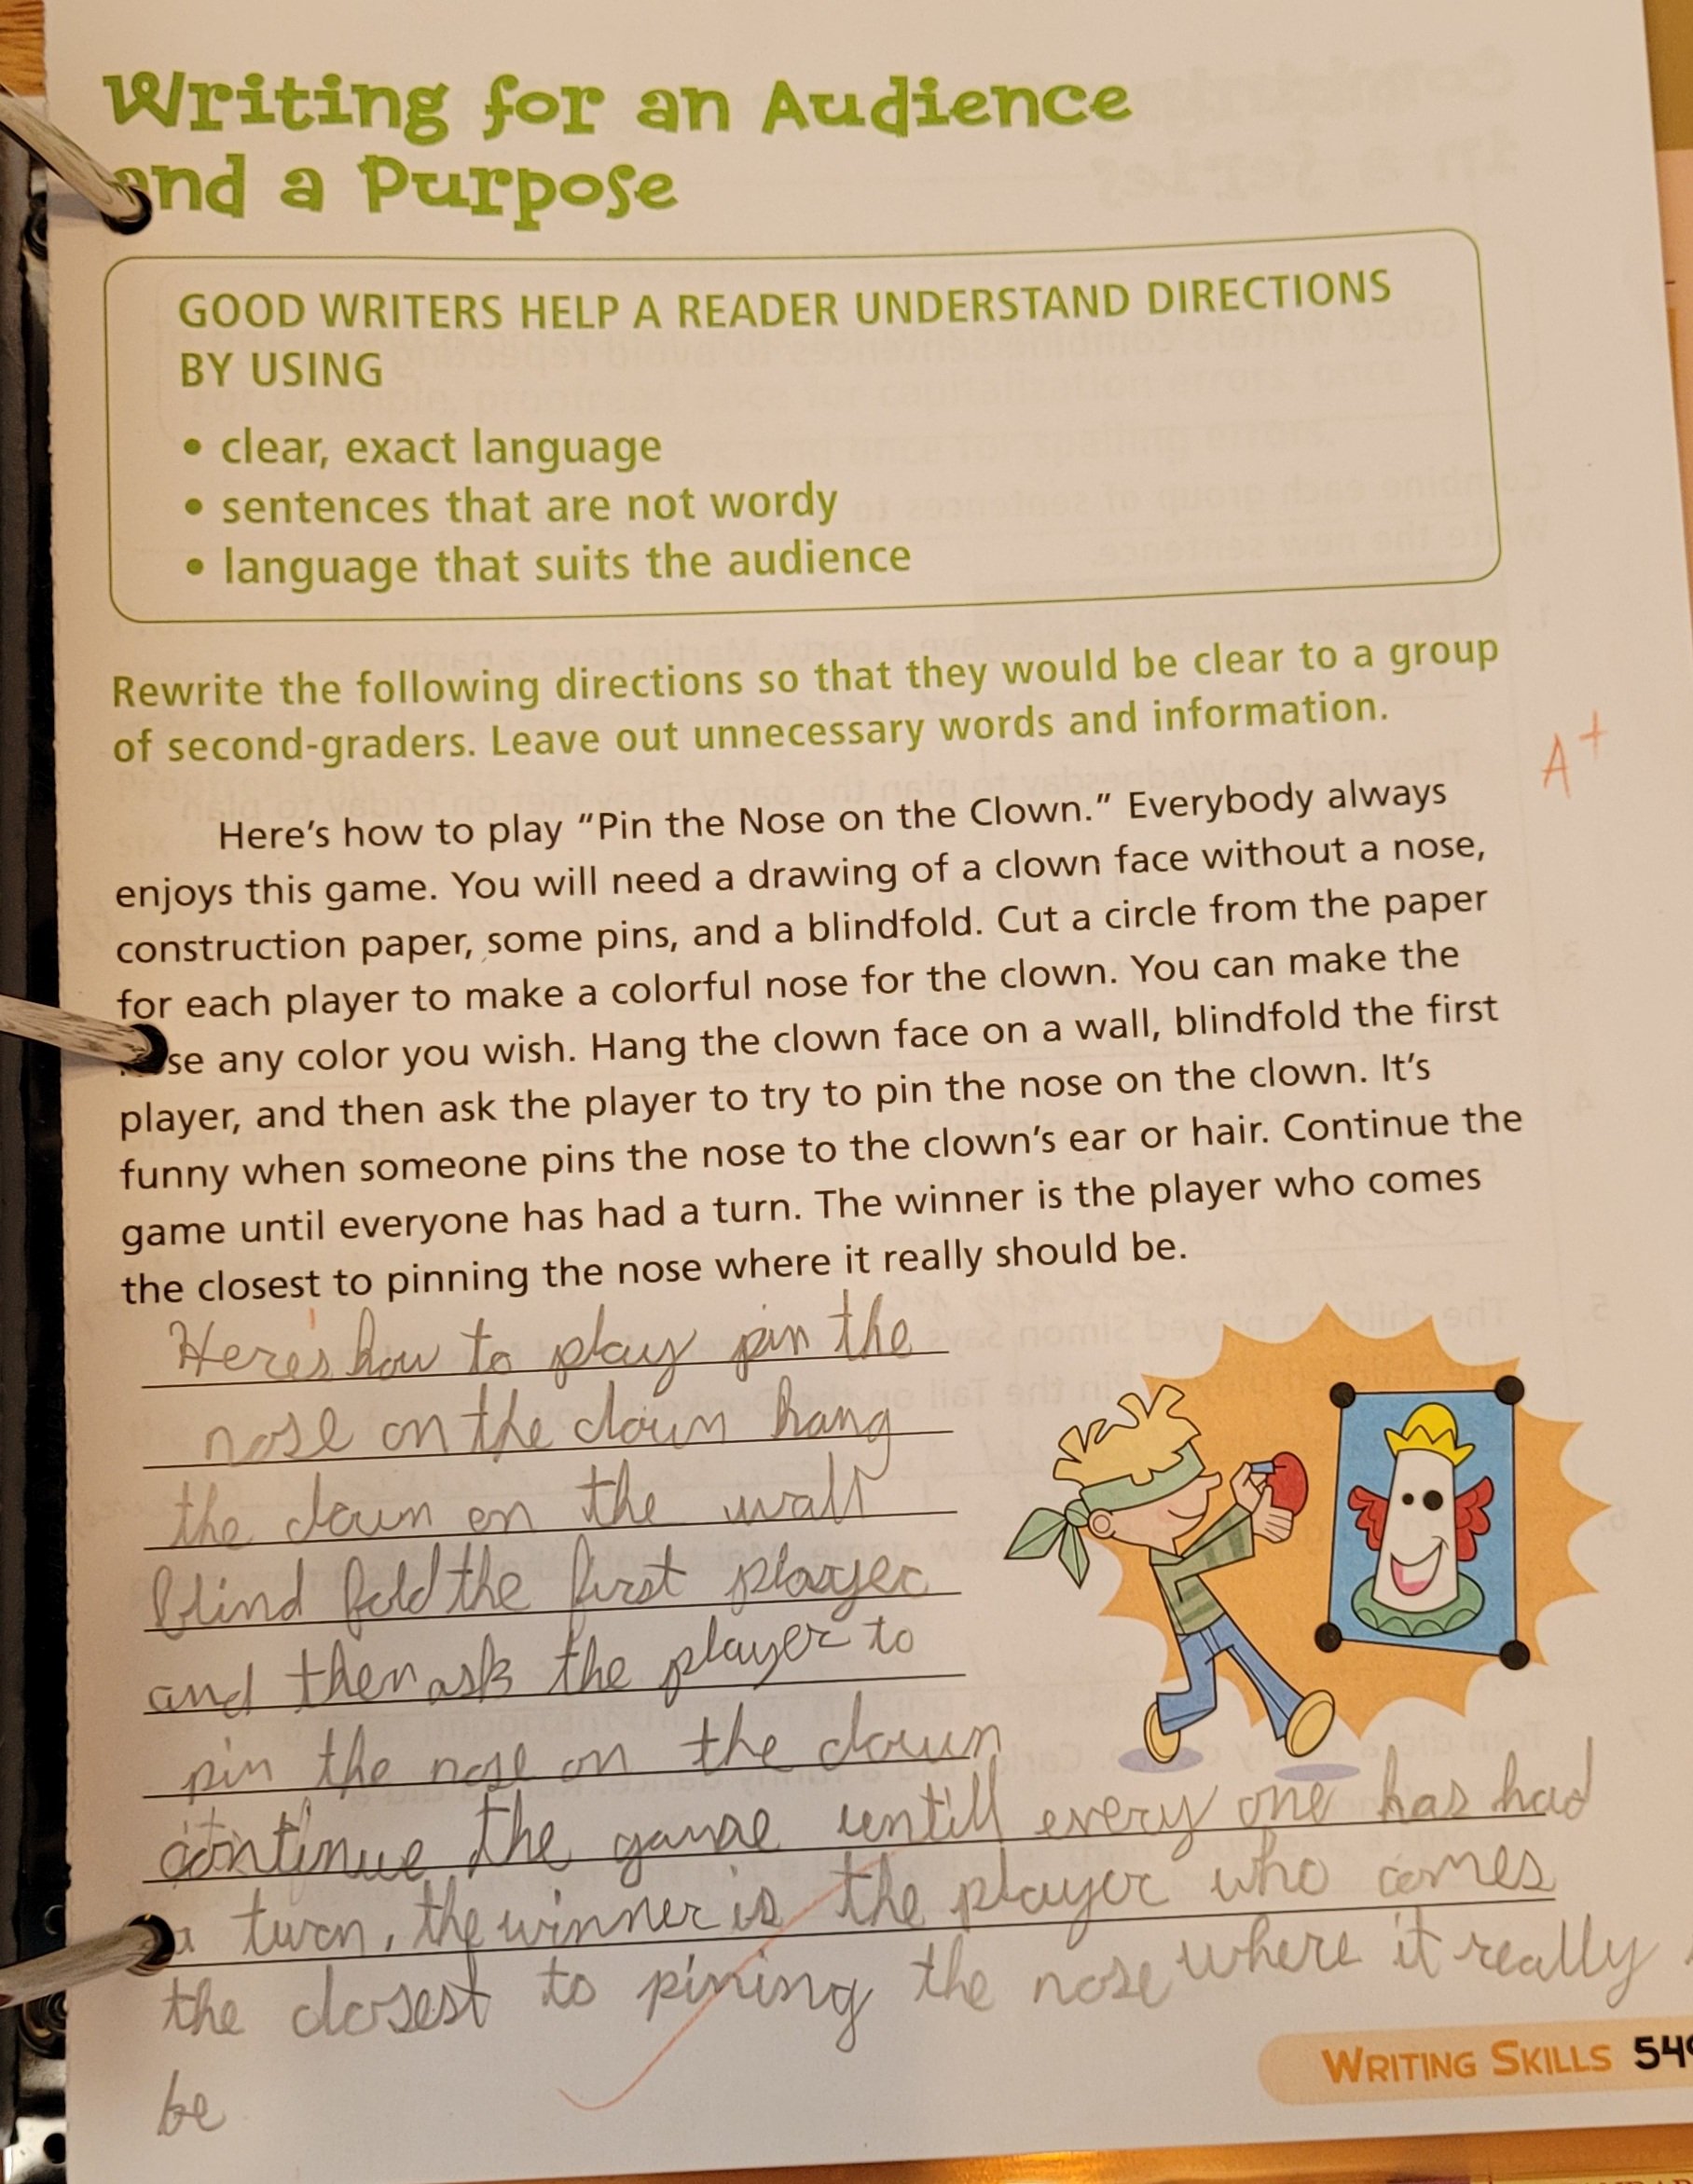 Writing for an Audience
and a Purpose
GOOD WRITERS HELP A READER UNDERSTAND DIRECTIONS
BY USING
• clear, exact language
• sentences that are not wordy
• language that suits the audience
Rewrite the following directions so that they would be clear to a group
of second-graders. Leave out unnecessary words and information.
A+
Here's how to play “Pin the Nose on the Clown.” Everybody always
enjoys this game. You will need a drawing of a clown face without a nose,
construction paper, some pins, and a blindfold. Cut a circle from the paper
for each player to make a colorful nose for the clown. You can make the
se any color you wish. Hang the clown face on a wall, blindfold the first
player, and then ask the player to try to pin the nose on the clown. It's
funny when someone pins the nose to the clown's ear or hair. Continue the
game until everyone has had a turn. The winner is the player who comes
the closest to pinning the nose where it really should be.
Here's how to play pin the
nose on the clown hang
the clown on the wall
blind fold the first player
and then ask the player to
pin the nose on the clown
continue the game untill every one has had
a turn, the winner is the player who comes
the closest to pining the nose where it really
be
WRITING SKILLS 549